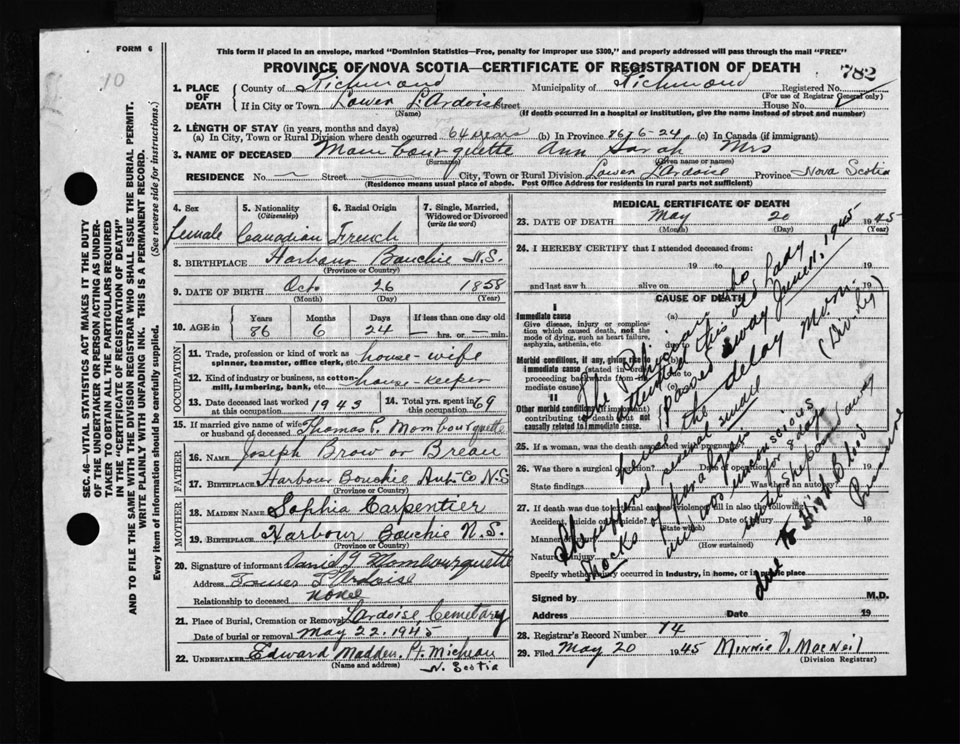 FORM 6
10
This form if placed in an envelope, marked "Dominion Statistics—Free, penalty for improper use $300," and properly addressed will pass through the mail "FREE"
PROVINCE OF NOVA SCOTIA—CERTIFICATE OF REGISTRATION OF DEATH
782
SEC. 46—VITAL STATISTICS ACT MAKES IT THE DUTY
OF THE UNDERTAKER OR PERSON ACTING AS UNDER-
TAKER TO OBTAIN ALL THE PARTICULARS REQUIRED
IN THE "CERTIFICATE OF REGISTRATION OF DEATH"
AND TO FILE THE SAME WITH THE DIVISION REGISTRAR WHO SHALL ISSUE THE BURIAL PERMIT.
WRITE PLAINLY WITH UNFADING INK. THIS IS A PERMANENT RECORD.
Every item of information should be carefully supplied. (See reverse side for instructions.)
1. PLACE OF DEATH
County of Richmond Municipality of Richmond Registered No.
(For use of Registrar General only)
If in City or Town Lower L'Ardoise Street House No.
(Name) (If death occurred in a hospital or institution, give the name instead of street and number)
2. LENGTH OF STAY (in years, months and days)
(a) In City, Town or Rural Division where death occurred 64 years (b) In Province 86-6-24 (c) In Canada (if immigrant)
3. NAME OF DECEASED Mombourquette Ann Sarah Mrs
(Surname) (Given name or names)
RESIDENCE No. Street City, Town or Rural Division Lower L'Ardoise Province Nova Scotia
(Residence means usual place of abode. Post Office Address for residents in rural parts not sufficient)
4. Sex 5. Nationality (Citizenship) 6. Racial Origin 7. Single, Married, Widowed or Divorced (write the word)
Female Canadian French
8. BIRTHPLACE Harbour Bouchie N.S.
(Province or Country)
9. DATE OF BIRTH Oct 26 1858
(Month) (Day) (Year)
10. AGE in Years Months Days If less than one day old
86 6 24 hrs. or min.
OCCUPATION
11. Trade, profession or kind of work as spinner, teamster, office clerk, etc. house-wife
12. Kind of industry or business, as cotton-mill, lumbering, bank, etc. house-keeper
13. Date deceased last worked at this occupation 1943 14. Total yrs. spent in this occupation 69
15. If married give name of wife or husband of deceased Thomas P. Mombourquette
FATHER
16. Name Joseph Brow or Breau
17. Birthplace Harbour Bouchie Ant. Co N.S
(Province or Country)
MOTHER
18. Maiden Name Sophia Carpentier
19. Birthplace Harbour Bouchie N.S.
(Province or Country)
20. Signature of informant David J Mombourquette
Address L'Ardoise
Relationship to deceased none
21. Place of Burial, Cremation or Removal Lardoise, Cemetary
Date of burial or removal May 22. 1945
22. UNDERTAKER Edward Madden. Pt. Micheau
(Name and address) N. Scotia
MEDICAL CERTIFICATE OF DEATH
23. DATE OF DEATH May 20 1945
(Month) (Day) (Year)
24. I HEREBY CERTIFY that I attended deceased from:
19 to 19
and last saw h alive on 19
CAUSE OF DEATH
I
Immediate cause (a)
Give disease, injury or complication which caused death, not the mode of dying, such as heart failure, asphyxia, asthenia, etc. due to
Morbid conditions, if any, giving rise to immediate cause (stated in order proceeding backwards from immediate cause) (b) due to (c)
II
Other morbid conditions (if important) contributing to death but not causally related to immediate cause.
25. If a woman, was the death associated with pregnancy?
26. Was there a surgical operation? Date of operation 19
State findings Was there an autopsy?
27. If death was due to external causes (violence) fill in also the following:
Accident, suicide or homicide? Date of injury 19
(State which)
Manner of injury
(How sustained)
Nature of injury
Specify whether injury occurred in industry, in home, or in public place
The Physician who
attended this old Lady
passed away June 11, 1945
hence the delay M.V.M.
(Div. by)
She suffered several small
shocks of paralysis
and was unconscious
for 8 days
until she passed away
due to High Blood
Pressure
Signed by M.D.
Address Date 19
28. Registrar's Record Number 14
29. Filed May 20 1945 Minnie V. MacNeil
(Division Registrar)